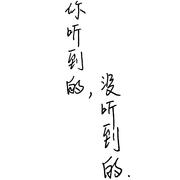 你听到的，
没听到的.